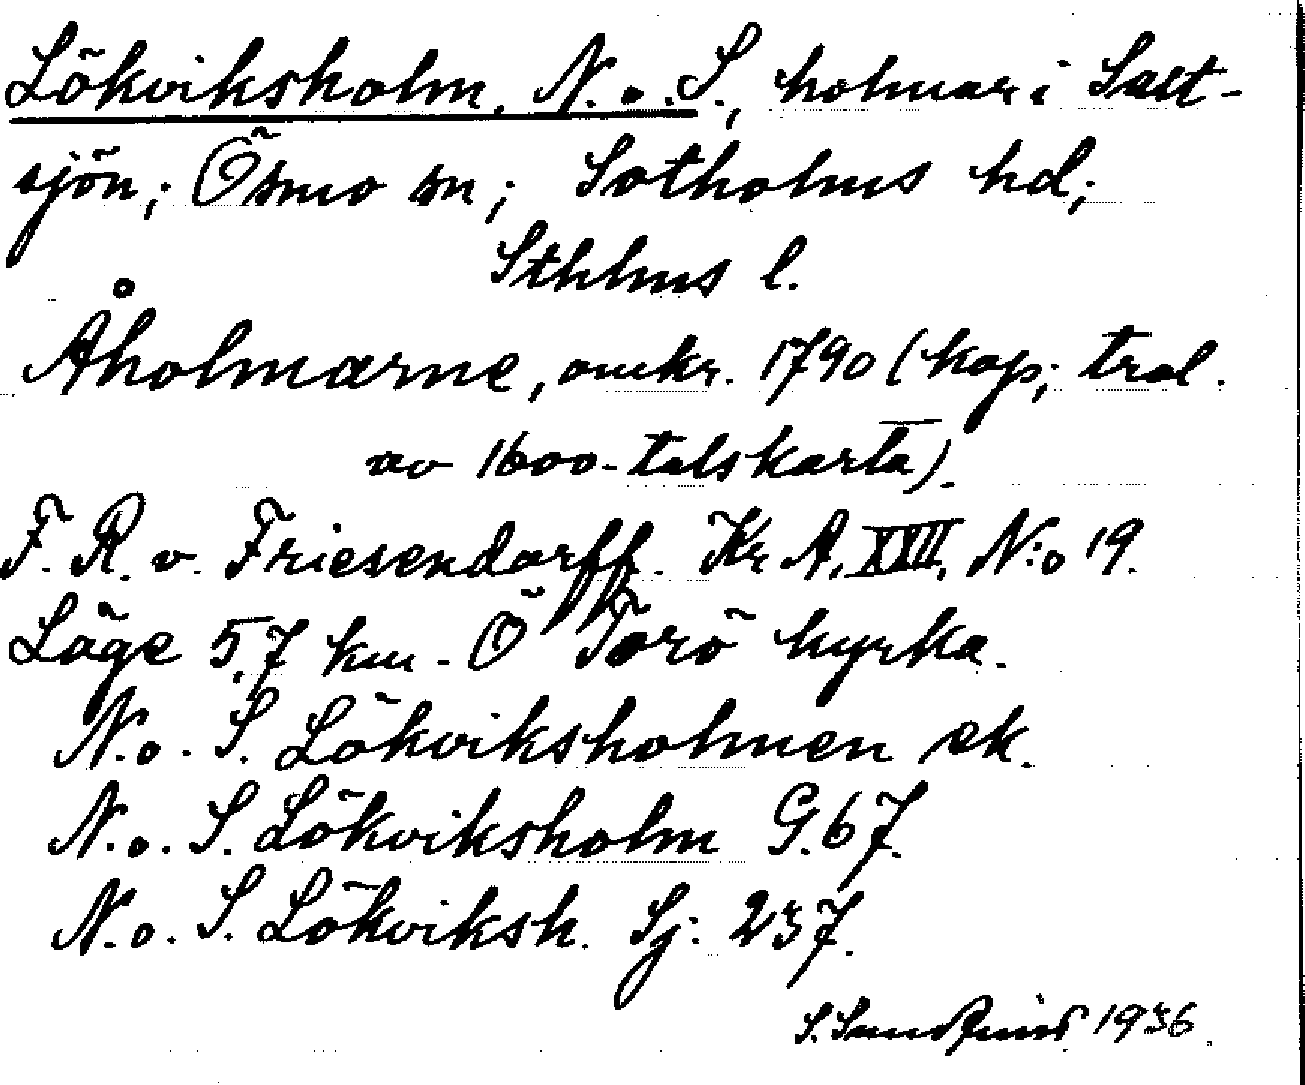 Lökviksholm, N. o. S., holmar i Salt-
sjön; Ösmo sn; Sotholms hd;
Sthlms l.
Åholmarne, omkr. 1790 (kop; trol.
av 1600-talskarta).
F. R. v. Friesendorff. Kr A, XVII, N:o 19.
Läge 5,7 km. Ö Torö kyrka.
N. o. S. Lökviksholmen ek.
N. o. S. Lökviksholm G. 67.
N. o. S. Lökviksh. Sj: 237.
1936.